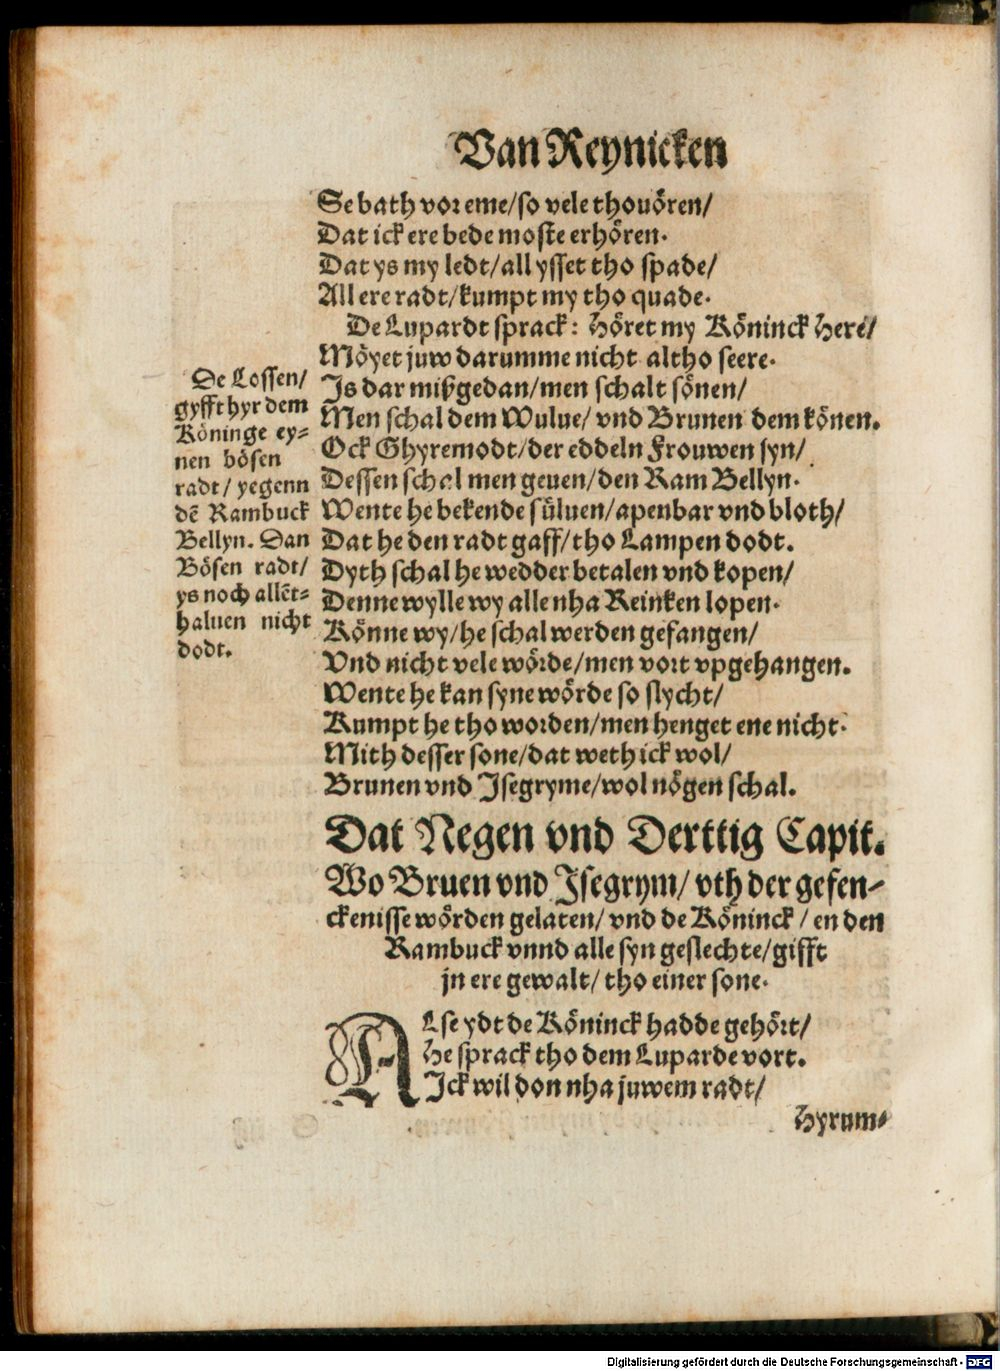 Van Reynicken
Se bath vor eme/so vele thouören/
Dat ick ere bede moste erhören.
Dat ys my ledt/all ysset tho spade/
All ere radt/kumpt my tho quade.
De Lupardt sprack: Höret my Köninck Here/
Möyet juw darumme nicht altho seere.
Js dar mißgedan/men schalt sönen/
Men schal dem Wulue/ vnd Brunen dem könen.
Ock Ghyremodt/der eddeln Frouwen syn/
Dessen schal men geuen/den Ram Bellyn.
Wente he bekende süluen/apenbar vnd bloth/
Dat he den radt gaff/tho Lampen dodt.
Dyth schal he wedder betalen vnd kopen/
Denne wylle wy alle nha Reinken lopen.
Könne wy/he schal werden gefangen/
Vnd nicht vele wörde/men vort vpgehangen.
Wente he kan syne wörde so slycht/
Kumpt he tho worden/men henget ene nicht.
Mith desser sone/dat weth ick wol/
Brunen vnd Jsegryme/wol nögen schal.
De Lossen/
gyfft hyr dem
Köninge ey-
nen bösen
radt/ yegenn
dē Rambuck
Bellyn. Dan
Bösen radt/
ys noch allēt-
haluen nicht
dodt.
Dat Negen vnd Derttig Capit.
Wo Bruen vnd Jsegrym/ vth der gefen-
ckenisse wörden gelaten/ vnd de Köninck / en den
Rambuck vnnd alle syn geslechte/gifft
jn ere gewalt/ tho einer sone.
ALse ydt de Köninck hadde gehört/
He sprack tho dem Luparde vort.
Jck wil don nha juwem radt/
Hyrum-
Digitalisierung gefördert durch die Deutsche Forschungsgemeinschaft - DFG